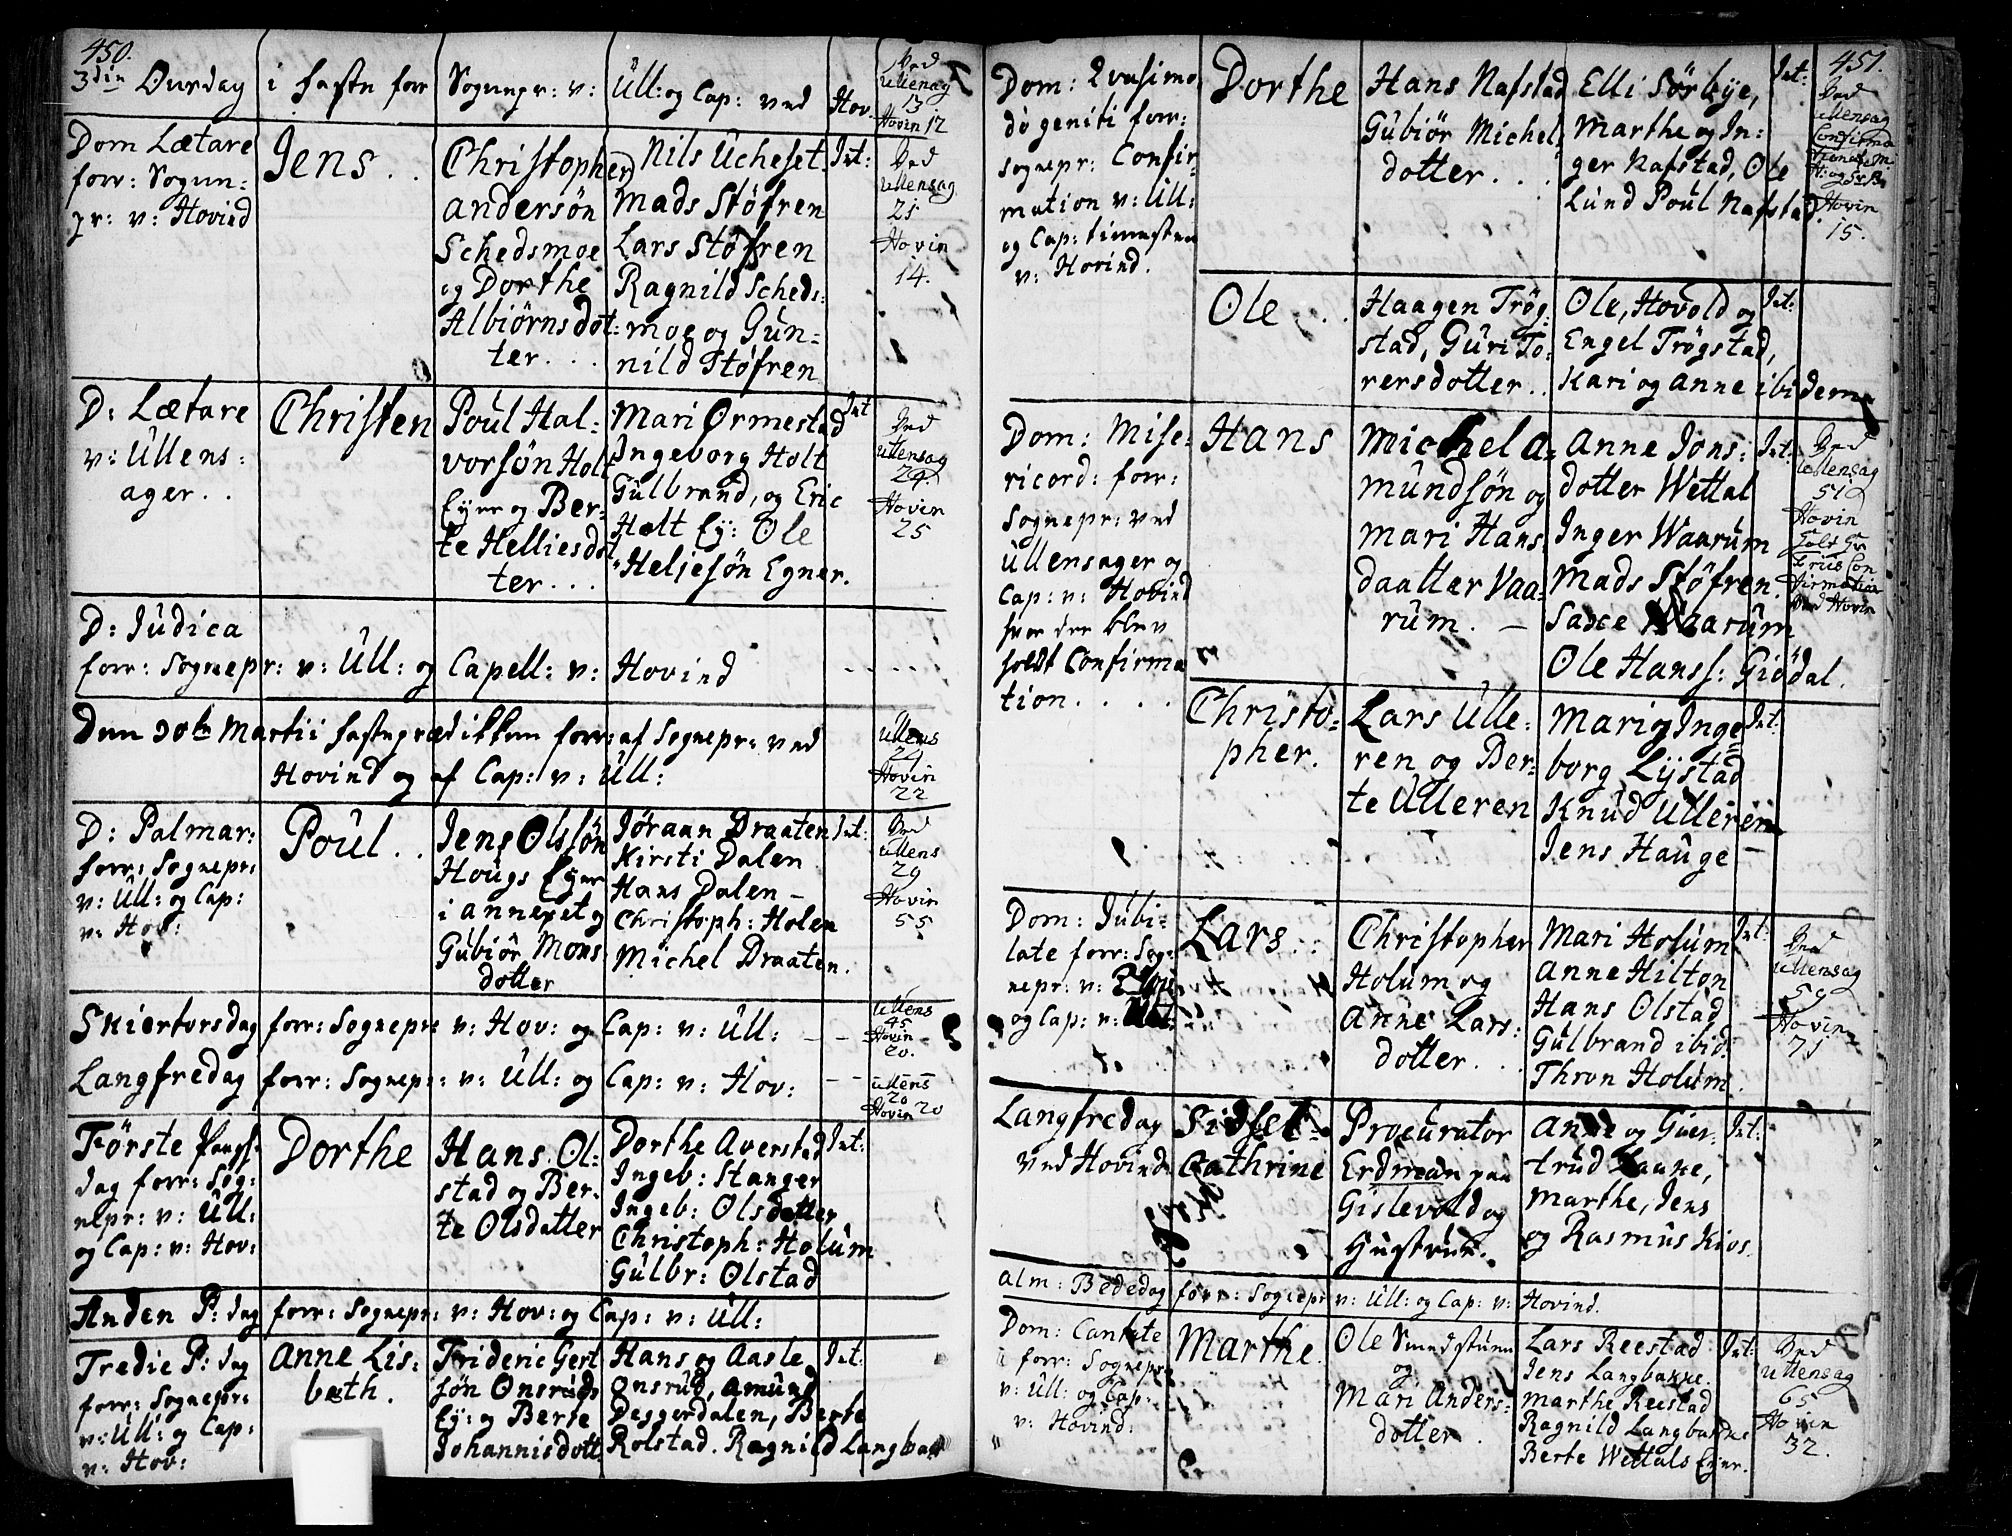 450.
3die Onsdag i Faste forr Sognepr: v: Ull: og Cap: ved Hov.
Ved
Ullensag
13
Hovin 12
Dom Lætare
forr: Sogne-
pr: v: Hovind
Jens . .
Christopher
Andersøn
Schedsmoe
og Dorthe
Albiørnsdot:
ter . . .
Nils Ucheset
Mads Støfren
Lars Støfren
Ragnild Scheds:
moe og Gun=
nild Støfren
Int:
Ved
Ullensag
21
Hovin
14.
D: Lætare
v: Ullens:
ager . .
Christen
Poul Hal:
vorsøn Holt
Eyer og Ber:
te Helliesdot
ter . . .
Mari Ormestad
Ingeborg Holt
Gulbrand, og Eric
Holt Ey: Ole
Heljesøn Egner.
Int
Ved
Ullensag
24
Hovin
25
D: Judica
forr: Sognepr: v: Ull: og Capell: v: Hovind
Den 30te Martii fasteprædikken forr: af Sognepr: ved
Hovind og af Cap: v: Ull:
Ullens
24
Hovin
22
D: Palmar:
forr: Sognepr:
v: Ull: og Cap:
v: Hov:
Poul . .
Jens Olssøn
Hougs Eyer
i annexet og
Gubiør Mons
dotter
Jøraan Draaten
Kirsti Dalen
Hans Dalen –
Christoph: Holen
Michel Draaten.
Int:
Ved
Ullens
29
Hovin
55
Skiertorsdag forr: Sognepr: v: Hov: og Cap: v: Ull:
Ullens
45
Hovin
20.
Langfredag forr: Sognepr: v: Ull: og Cap: v: Hov:
Ullens
20
Hovin 20
Første Paaske
dag forr: Sog:
nepr: v: Ull:
og Cap: v: Hov:
Dorthe
Hans Ol:
stad og Ber:
te Olsdatter
Dorthe Averstad
Ingeb: Stanger
Ingeb: Olsdotter
Christoph: Holum
Gulbr: Olstad
Int:
Anden P: dag forr: Sognepr: v: Hov: og Cap: v: Ull:
Tredie P: dag
forr: Sognepr:
v: Ull: og Cap:
v: Hov:
Anne Lis:
bæth.
Frideric Gert
søn Onsruds
Ey: og Berte
Johannisdott
Hans og Aasle
Onsrud, Amund
Desgerdalen, Berte
Rolstad. Ragnild Langbak
Int:
451.
Dom: Quasimo
do geniti forr:
Sognepr: Confir:
mation v: Ull:
og Cap: tienesten
v: Hovind.
Dorthe
Hans Nafstad
Gubiør Michels
dotter . . .
Elli Sørbye,
Marthe og In:
ger Nafstad, Ole
Lund Poul Nafstad
Int:
Ved
Ullensag
Hovin
15.
Ole . .
Haagen Trøg:
stad, Guri To:
rersdotter . .
Ole, Hovold og
Engel Trøgstad,
Kari og Anne ibidem
Int:
Dom: Mise:
ricord: forr:
Sognepr: ved
Ullensager og
Cap: v: Hovind
hvor der blev
holdt Confirma
tion . . . .
Hans
Michel A:
mundsøn og
Mari Hans
daatter Vaa:
rum. –
Anne Jons:
dotter Wettal
Inger Waarum
Mads Støfren.
Saxe Waarum
Ole Hanss: Giødal.
Int:
Ved
Ullensag
51
Hovin
Christo:
pher.
Lars Ulle:
ren og Ber:
te Ulleren
Mari og Inge
borg Lystad
Knud Ulleren
Jens Hauge –
Int:
Dom: Jubi:
late forr: Sog:
nepr: v:
og Cap: v:
Lars . .
Christopher
Holum og
Anne Lars:
dotter . . .
Mari Holum
Anne Hilton
Hans Olstad
Gulbrand ibid:
Thron Holum.
Int:
Ved
Ullensag
59
Hovin
71
Langfredag
ved Hovind
Sidsel
Cathrine
Procurator
Erdman paa
Gislevold og
Hustrue.
Anne og Giær:
trud
Marthe, Jens
og Rasmus Kios.
Int:
Alm: Bededag forr: Sognepr v: Ull: og Cap: v: Hovind.
Dom: Cantate
forr: Sognepr:
v: Ull: og Cap:
v: Hovind:
Marthe.
Ole Smedstuen
og
Mari Anders:
dotter .
Lars Reestad
Jens Langbakke
Marthe Reestad
Ragnild Langbakke
Berte Wettals Eyer.
Int:
Ved
Ullensag
65
Hovin
32.